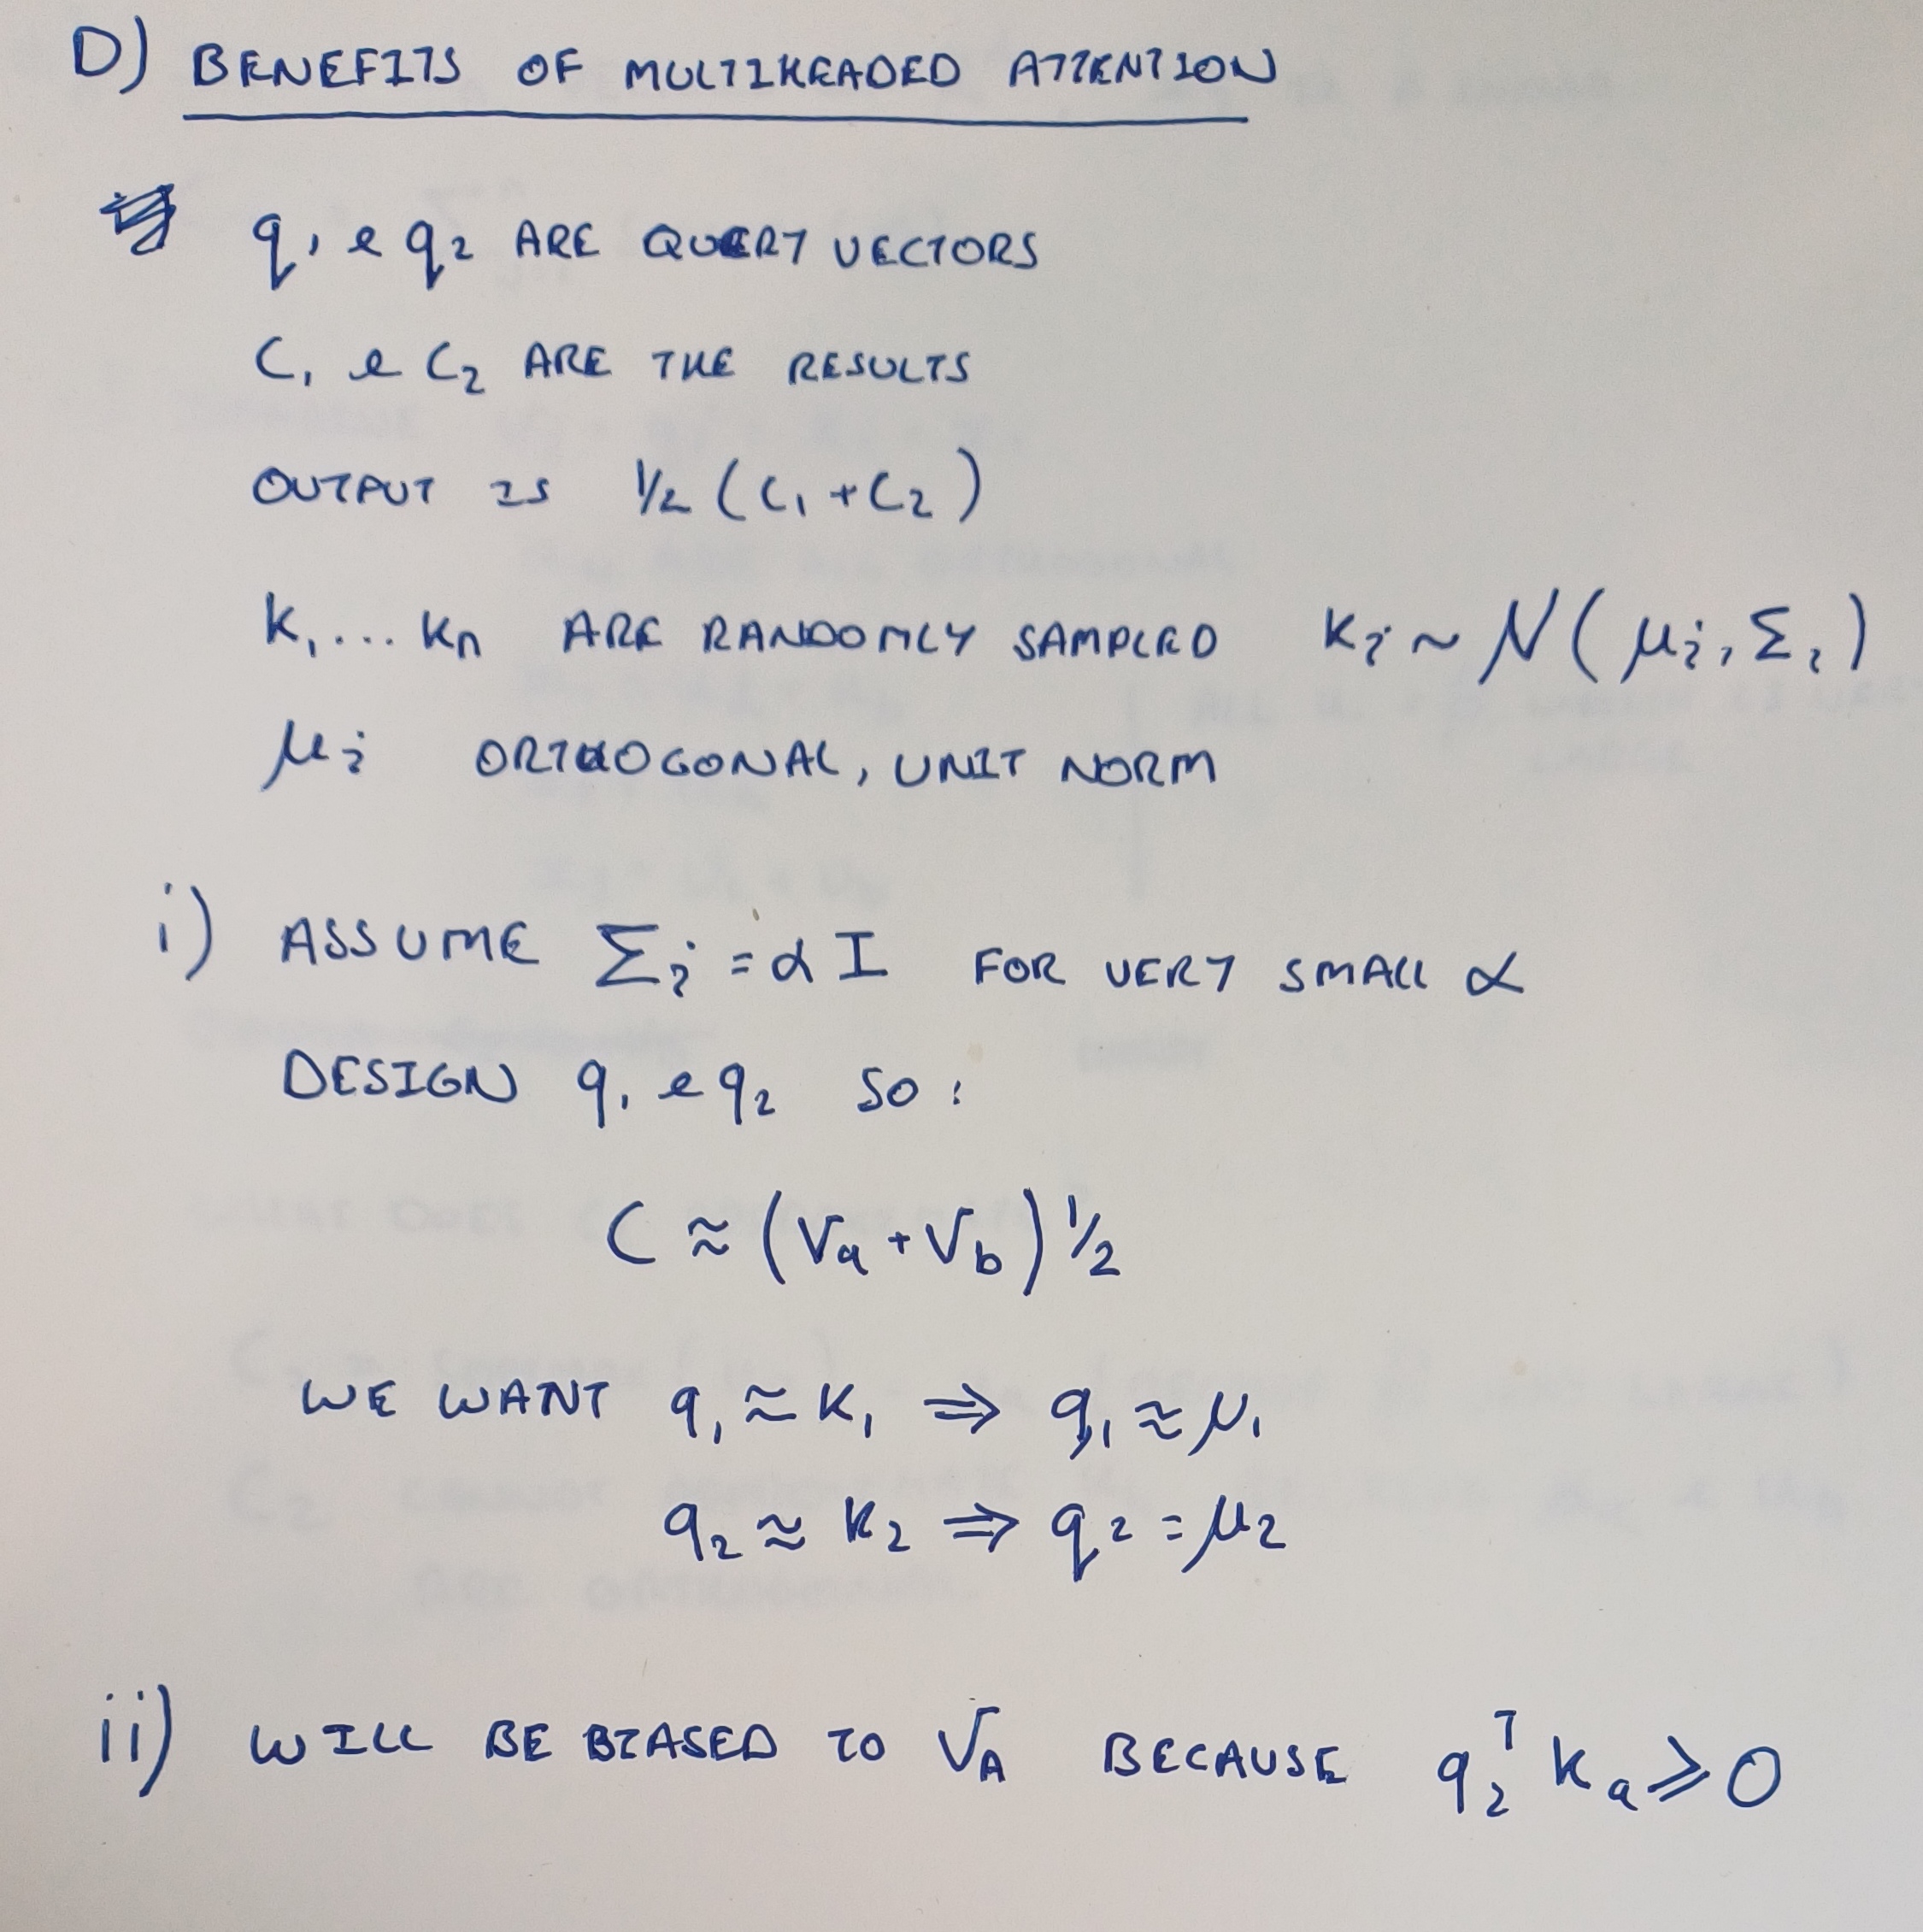 D) BENEFITS OF MULTIHEADED ATTENTION
q₁ e q₂ ARE QUERY VECTORS
C₁ e C₂ ARE THE RESULTS
OUTPUT IS ½ (C₁ + C₂)
K₁ ... Kn ARE RANDOMLY SAMPLED Ki ~ N(μi, Σi)
μi ORTHOGONAL, UNIT NORM
i) ASSUME Σi = α I FOR VERY SMALL α
DESIGN q₁ e q₂ SO :
C ≈ (Va + Vb) ½
WE WANT q₁ ≈ K₁ ⇒ q₁ ≈ μ₁
q₂ ≈ K₂ ⇒ q₂ = μ₂
ii) WILL BE BIASED TO VA BECAUSE q₂ᵀ Ka ⩾ 0